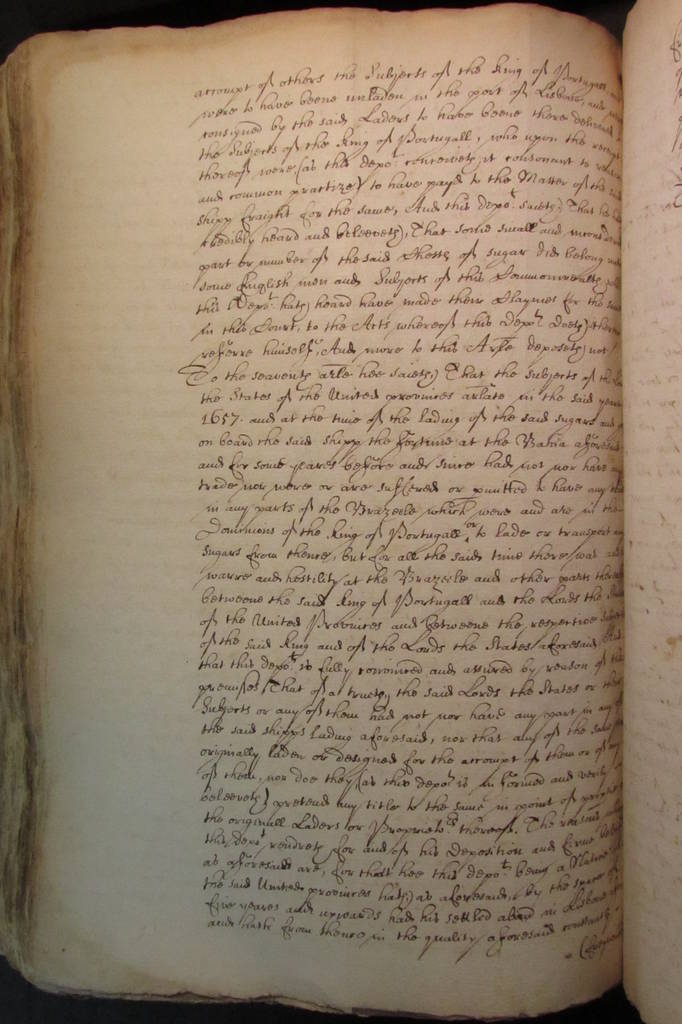 accompt of others the Subjects of the King of Portugall, and
were to have beene unladen in the port of Lisboa, and
consigned by the said Laders to have beene there delivered
the Subjects of the King of Portugall, who upon the receipt
thereof were (as this depot conceiveth it consonant to
and common practize) to have payd to the Master of the said
shipp fraight for the same, And this depot saieth, That he
credibly heard and beleeveth, That some small and
part or number of the said Chests of sugar did belong
some English men and Subjects of this Commonwealth,
this Depot hath heard have made their Claymes for the
in this Court, to the Acts whereof this Depot doeth
referre himselfe, And more to this Arle deposeth not
To the seaventh arle hee saieth, That the Subjects of the
the States of the United provinces arlate in the said yeare
1657. and at the time of the lading of the said sugars and
on board the said shipp the fortune at the Bahia aforesaid
and for some yeares before and since had not nor have any
trade nor were or are suffered or pmitted to have any
in any parts of the Brazeele which were and are in the
Dominions of the King of Portugall, or to lade or transport any
sugars from thence, but for all the said time there was
warre and hostility at the Brazeele and other parts
betweene the said King of Portugall and the Lords the
of the United Provinces and betweene the respective
of the said King and of the Lords the States aforesaid,
that this depot is fully convinced and assured by reason of the
premises That of a trueth, the said Lords the States or their
Subjects or any of them had not nor have any part in any of
the said shipps lading aforesaid, nor that any of the same
originally laden or designed for the accompt of them or of any
of them, nor doe they (as this depot is informed and verily
beleeveth) pretend any title to the same in point of
the originall Laders or Proprietors thereof. The reasons
this depot rendreth for and of his Deposition and
as aforesaid are, for that hee this depot being a Native
the said United provinces hath, as aforesaid, by the space of
five yeares and upwards had his settled abode in Lisboa
and hath from thence in the quality aforesaid